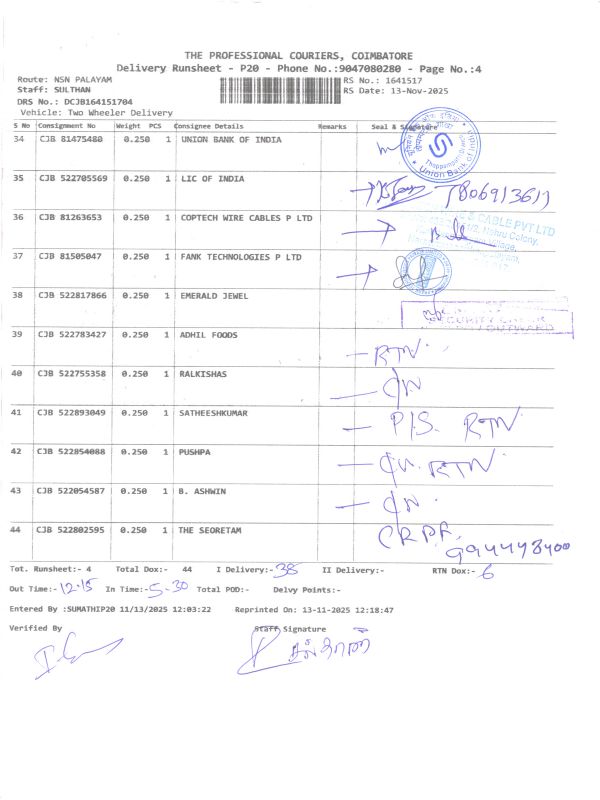 THE PROFESSIONAL COURIERS, COIMBATORE
Delivery Runsheet - P20 - Phone No.:9047080280 - Page No.:4
Route: NSN PALAYAM RS No.: 1641517
Staff: SULTHAN RS Date: 13-Nov-2025
DRS No.: DCJB164151704
Vehicle: Two Wheeler Delivery
S No Consignment No Weight PCS Consignee Details Remarks Seal & Signature
34 CJB 81475480 0.250 1 UNION BANK OF INDIA
Union Bank of India
35 CJB 522705569 0.250 1 LIC OF INDIA
36 CJB 81263653 0.250 1 COPTECH WIRE CABLES P LTD
& CABLE PVT LTD
Nehru Colony,
Village,
37 CJB 81505047 0.250 1 FANK TECHNOLOGIES P LTD
38 CJB 522817866 0.250 1 EMERALD JEWEL
39 CJB 522783427 0.250 1 ADHIL FOODS - RTN.
40 CJB 522755358 0.250 1 RALKISHAS
41 CJB 522893049 0.250 1 SATHEESHKUMAR - P/S. RTN
42 CJB 522854088 0.250 1 PUSHPA RTN
43 CJB 522054587 0.250 1 B. ASHWIN
44 CJB 522802595 0.250 1 THE SEORETAM CRPF.
Tot. Runsheet:- 4 Total Dox:- 44 I Delivery:- 38 II Delivery:- RTN Dox:- 6
Out Time:- 12.15 In Time:- 5-30 Total POD:- Delvy Points:-
Entered By :SUMATHIP20 11/13/2025 12:03:22 Reprinted On: 13-11-2025 12:18:47
Verified By Staff Signature